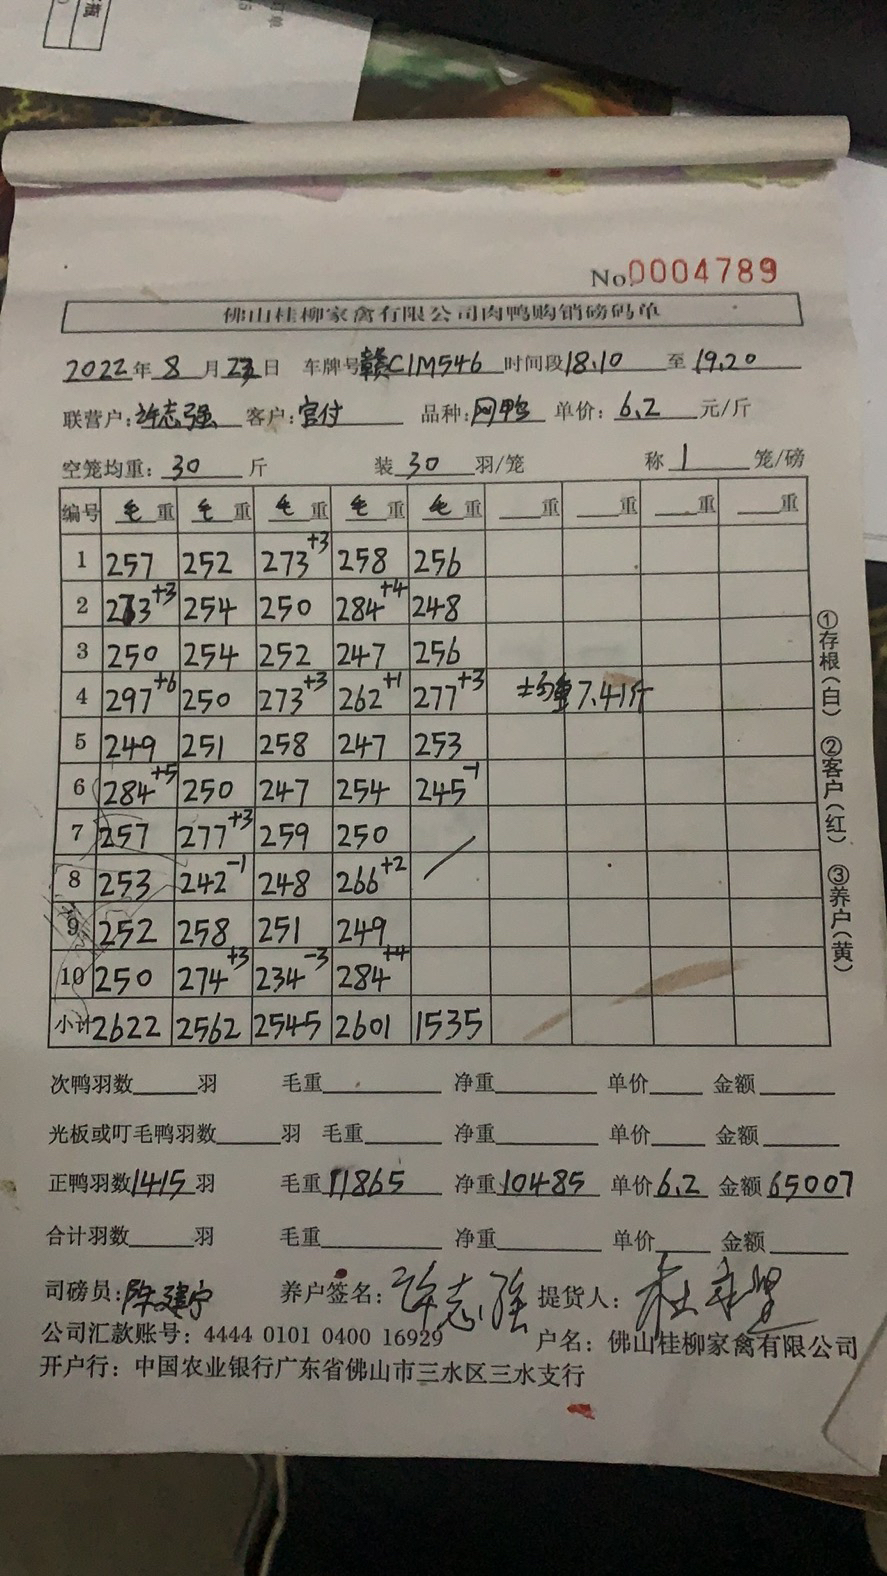 No.0004789
佛山桂柳家禽有限公司肉鸭购销磅码单
2022年 8 月 23 日 车牌号赣C1M546 时间段18.10 至 19.20
联营户:许志强 客户:官付 品种:网鸭 单价: 6.2 元/斤
空笼均重: 30 斤 装 30 羽/笼 称 1 笼/磅
编号 毛重 毛重 毛重 毛重 毛重 重 重 重 重
1 257 252 273+3 258 256
2 273+3 254 250 284+4 248
3 250 254 252 247 256
4 297+6 250 273+3 262+1 277+3 均重7.41斤
5 249 251 258 247 253
6 284+5 250 247 254 245-1
7 257 277+3 259 250
8 253 242-1 248 266+2
9 252 258 251 249
10 250 274+3 234-3 284+4
小计 2622 2562 2545 2601 1535
①存根(白) ②客户(红) ③养户(黄)
次鸭羽数 羽 毛重 净重 单价 金额
光板或叮毛鸭羽数 羽 毛重 净重 单价 金额
正鸭羽数1415 羽 毛重11865 净重10485 单价6.2 金额65007
合计羽数 羽 毛重 净重 单价 金额
司磅员:陈建宁 养户签名:许志强 提货人:
公司汇款账号: 4444 0101 0400 16929 户名: 佛山桂柳家禽有限公司
开户行: 中国农业银行广东省佛山市三水区三水支行